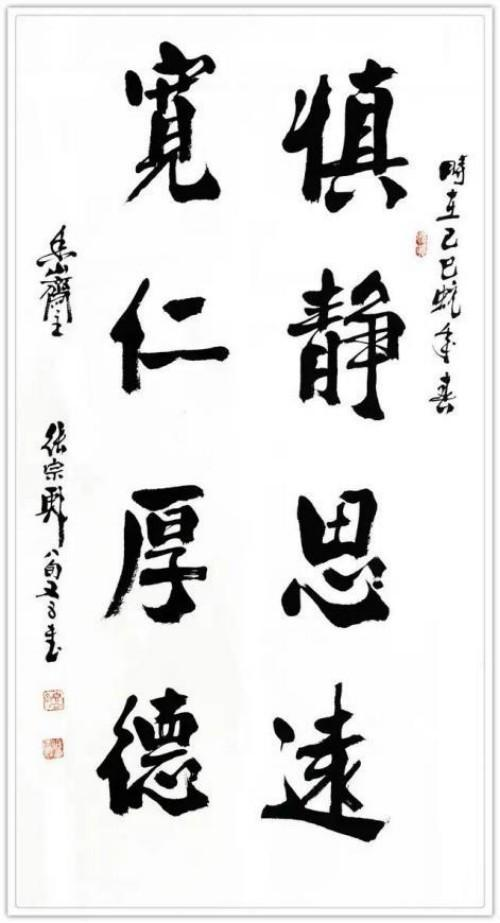 時在乙巳蛇年春
慎静思遠
寬仁厚德
山齋主
張宗 八旬又